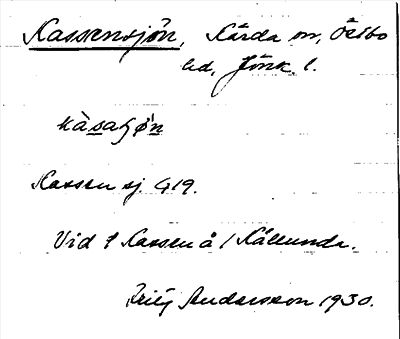 Kassensjön, Kärda sn, Östbo
hd, Jönk. l.
kàsaʃø̀n
Kassen sj. G19.
Vid 1 Kassen å 1 Källunda.
Fritz Andersson 1930.